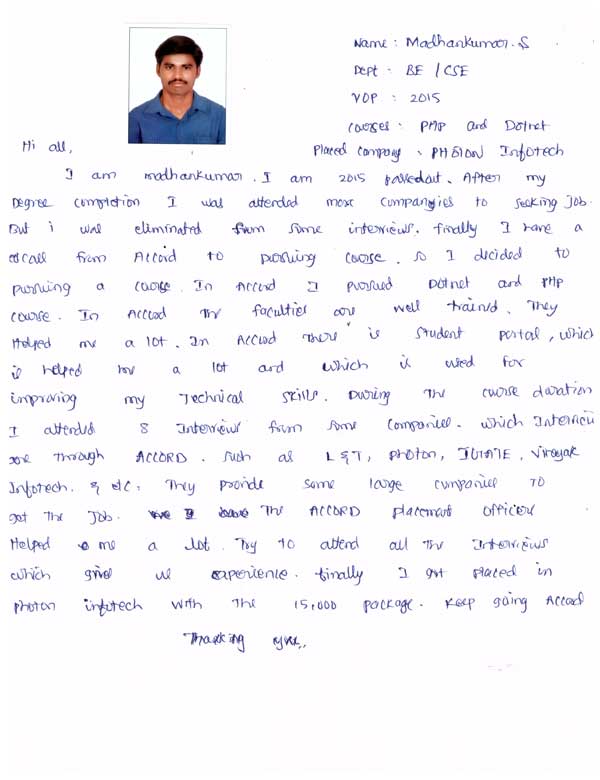 Name : Madhankumar.S
Dept : BE / CSE
YOP : 2015
Courses : PHP and Dotnet
Hi all,
Placed Company : PHOTON Infotech
I am madhankumar. I am 2015 passedout. After my
Degree completion I was attended more companyies to seeking Job.
But i was eliminated from some interviews. finally I have a
call from Accord to pursuing course. so I decided to
pursuing a course. In Accord I pursued Dotnet and PHP
course. In Accord The faculties are well trained. They
Helped me a lot. In Accord There is student portal, which
is helped me a lot and which is used for
improving my Technical skills. During The course duration
I attended 8 Interviews from some companies. which Interview
are Through ACCORD. such as L&T, photon, Vinayak
Infotech. & etc. They provide some large companies TO
get The Job. The ACCORD placement officers
Helped me a lot. Try to attend all The Interviews
which gives us experience. finally I got placed in
photon infotech with The 15,000 package. Keep going Accord
Thanking you..